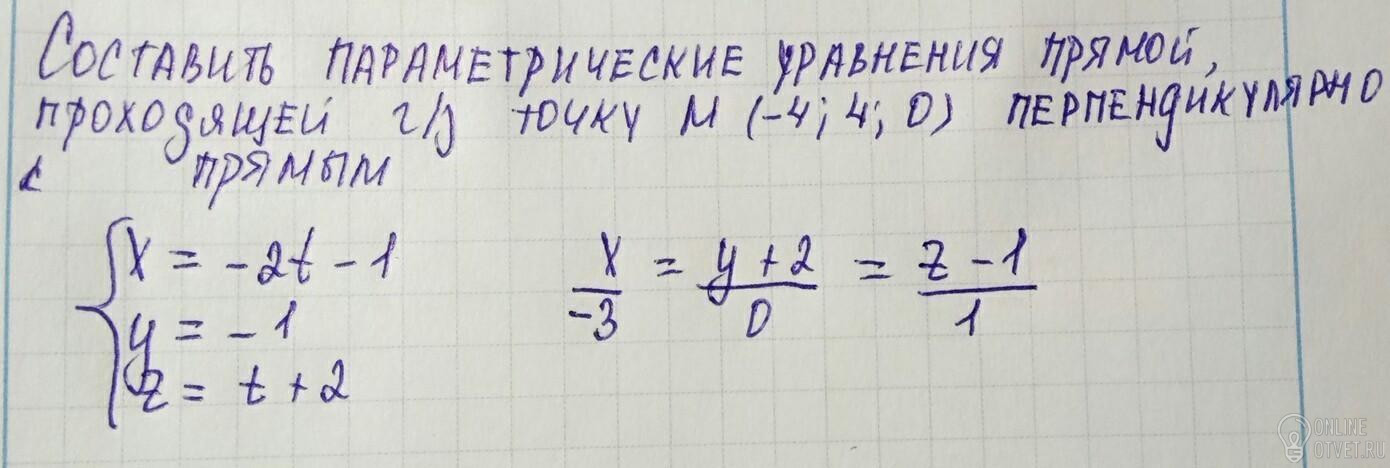 Составить параметрические уравнения прямой,
проходящей ч/з точку М (-4; 4; 0) перпендикулярно
к прямым
{ x = -2t - 1
y = -1
z = t + 2
x/-3 = y + 2/0 = z - 1/1
ONLINE
OTVET.RU